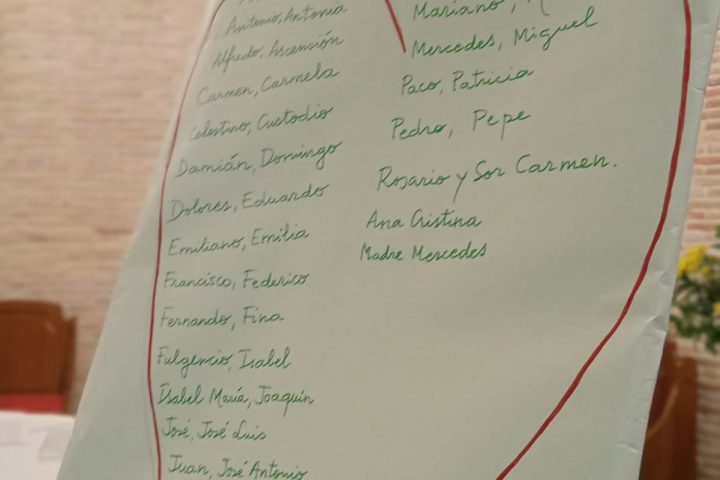 Antonio, Antonia
Alfredo, Ascensión
Carmen, Carmela
Celestino, Custodio
Damián, Domingo
Dolores, Eduardo
Emiliano, Emilia
Francisco, Federico
Fernando, Fina
Fulgencio, Isabel
Isabel María, Joaquín
José, José Luis
Juan, José Antonio
Mariano,
Mercedes, Miguel
Paco, Patricia
Pedro, Pepe
Rosario y Sor Carmen.
Ana Cristina
Madre Mercedes